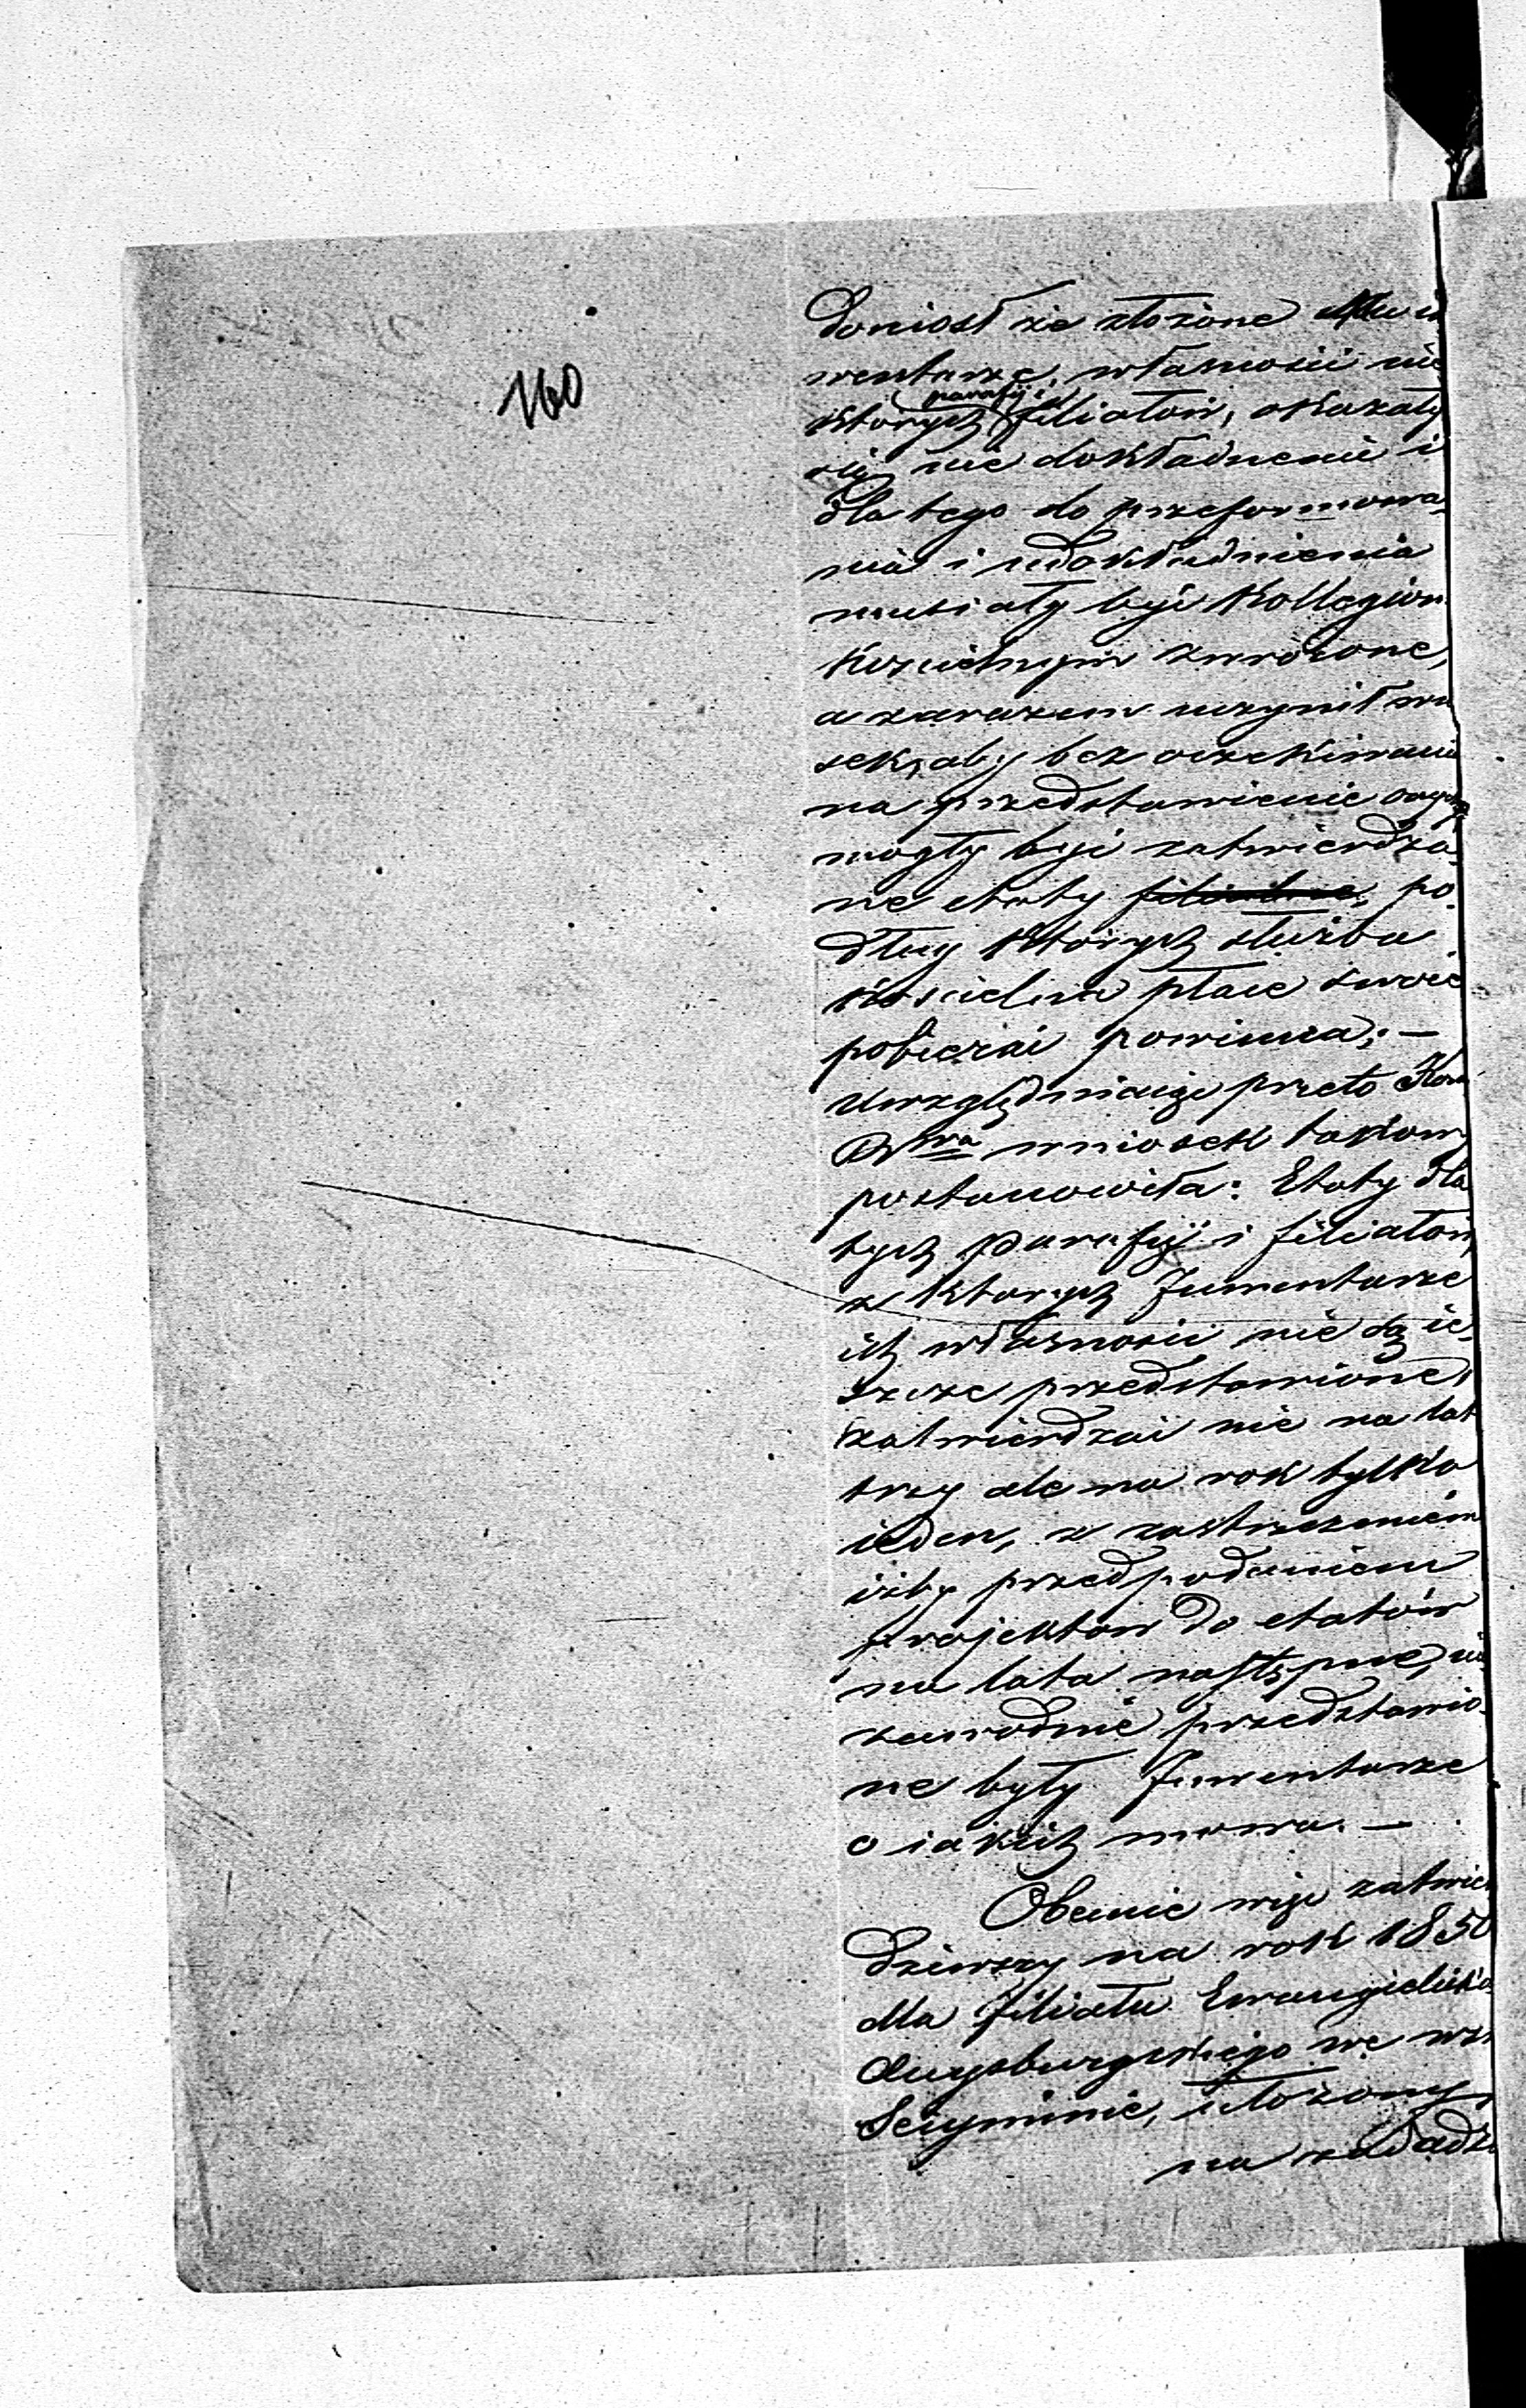 160
doniosł że złożone Mu in
wentarze, własności nie
parafij i
których filiałów, okazały
się nie dokładnemi i
dla tego do przeformowa-
nia i udokładnienia
musiały być Kollegiom
Kościelnym zwrócone,
a zarazem uczynił wn
sek, aby bez oczekiwania
na przedstawienie
mogły być zatwierdza-
ne etaty filialne, po-
dług których służba
Kościelna płace swoie
pobierać powinna; —
Uwzględniaiąc przeto Kom
Rwa wniosek takowy
postanowiła: Etaty dla
tych Parafij i filiałów,
z których Inwentarze
ich własności nie są ie-
szcze przedstawione,
zatwierdzać nie na lat
trzy ale na rok tylko
ieden, z zastrzeżeniem
iżby przed podaniem
projektów do etatów
na lata następne, nie-
zawodnie przedstawio-
ne były Inwentarze
o iakich mowa. —
Obecnie więc zatwier
dziwszy na rok 1850
dla filiału Ewangielicko
Augsburgskiego we wsi
Secyminie, ułożony,
na zasadzie